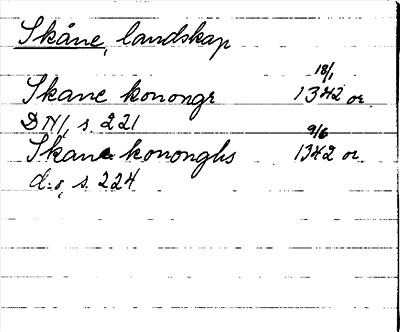 Skåne, landskap
18/1
Skane konongr 1342 or.
DN/, s. 221
9/6
Skane kononghs 1342 or.
d:o, s. 224